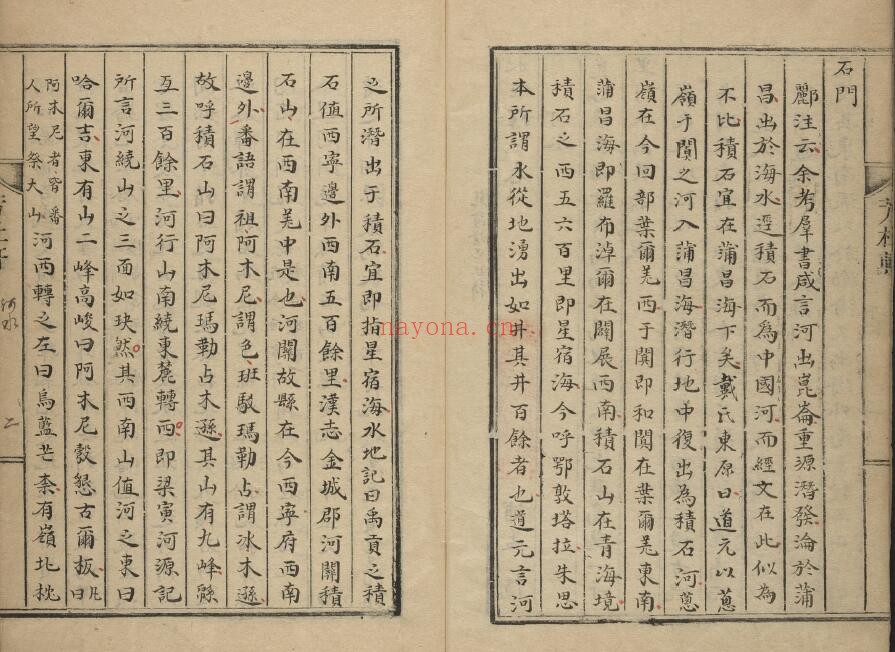 石門
酈注云余考羣書咸言河出崑崙重源潛發淪於蒲
昌出於海水逕積石而為中國河而經文在此似為
不比積石宜在蒲昌海下矣戴氏東原曰道元以蔥
嶺于闐之河入蒲昌海潛行地中復出為積石河蔥
嶺在今回部葉爾羌西于闐即和闐在葉爾羌東南
蒲昌海即羅布淖爾在闢展西南積石山在青海境
積石之西五六百里即星宿海今呼鄂敦塔拉朱思
本所謂水從地湧出如井其井百餘者也道元言河
之所潛出于積石宜即指星宿海水地記曰禹貢之積
石值西寧邊外西南五百餘里漢志金城郡河關積
石山在西南羌中是也河關故縣在今西寧府西南
邊外番語謂祖阿木尼謂色班駁瑪勒占謂冰木遜
故呼積石山曰阿木尼瑪勒占木遜其山有九峰緜
亙三百餘里河行山南繞東麓轉西即梁寅河源記
所言河繞山之三面如玦然其西南山值河之東曰
哈爾吉東有山二峰高峻曰阿木尼瑴懇古爾板曰凡
阿木尼者皆番
人所望祭大山河西轉之左曰烏藍芒柰有嶺北枕
河水
二
mayona.cn